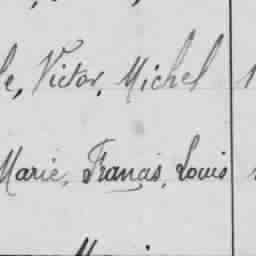 le, Victor, Michel
Marie, Franças, Louis